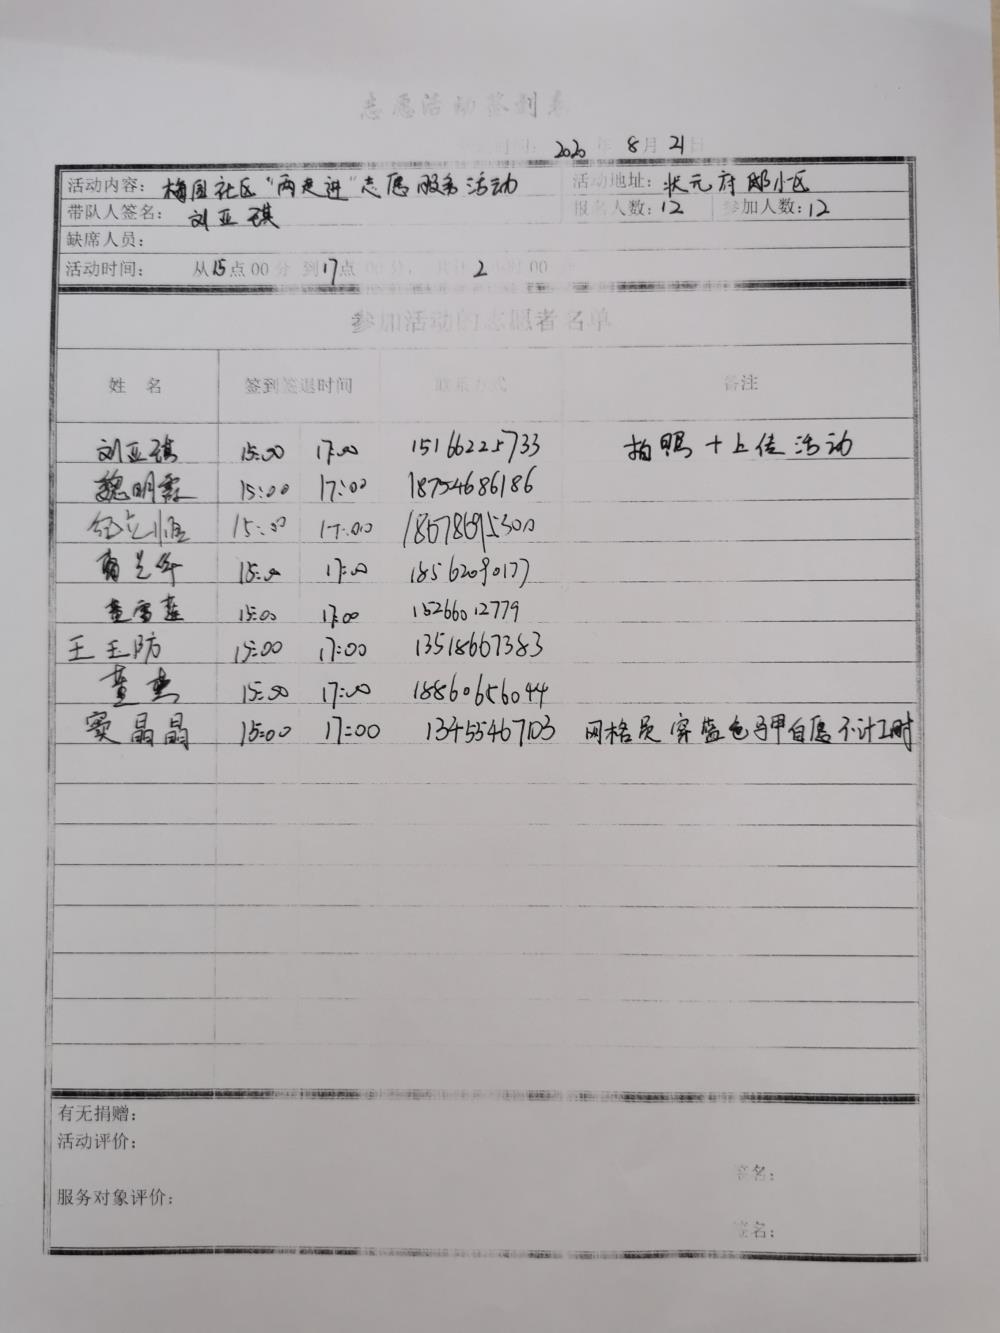 志愿活动签到表
时间: 2020 年 8月 21日
活动内容: 梅园社区“两走进”志愿服务活动 活动地址: 状元府邸小区
带队人签名: 刘亚琪 报名人数: 12 参加人数: 12
缺席人员:
活动时间: 从15点00分 到17点00分, 共计2小时00分
参加活动的志愿者名单
姓 名 签到签退时间 联系方式 备注
刘亚琪 15:00 17:00 15166225733 拍照+上传活动
魏明霖 15:00 17:00 18754686186
15:00 17:00 18678695300
15:00 17:00 18562090177
董雷蕾 15:00 17:00 15266012779
王玉防 15:00 17:00 13518667383
董杰 15:00 17:00 18860656044
窦晶晶 15:00 17:00 13455467103 网格员穿蓝色马甲自愿不计工时
有无捐赠:
活动评价:
签名:
服务对象评价:
签名: